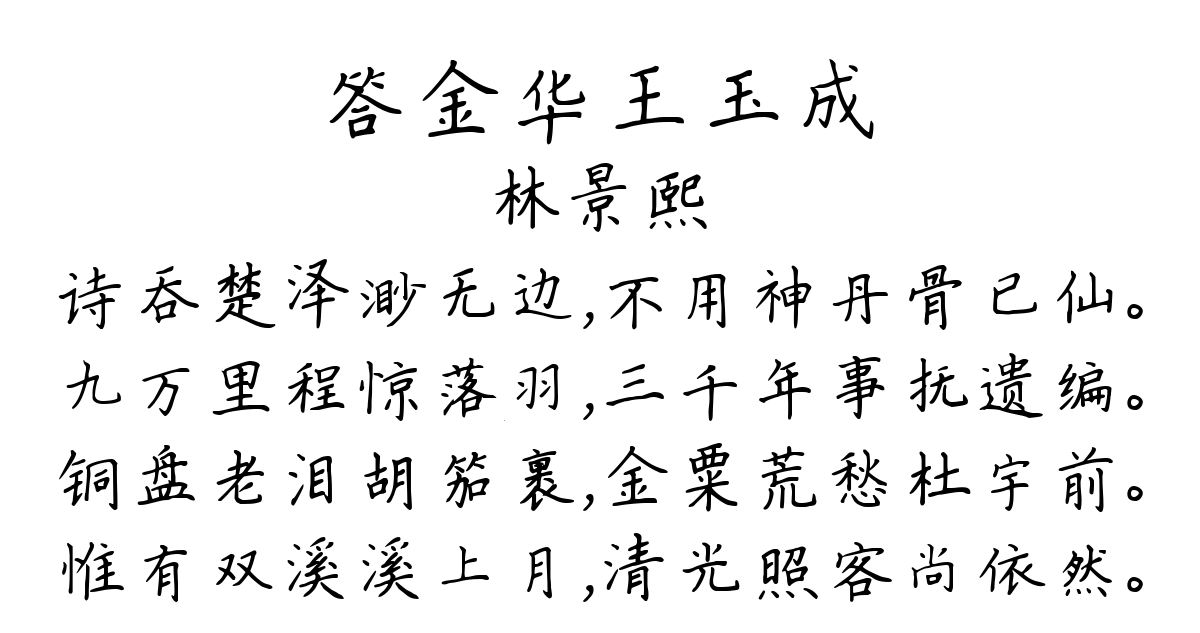 答金华王玉成
林景熙
诗吞楚泽渺无边,不用神丹骨已仙。
九万里程惊落羽,三千年事抚遗编。
铜盘老泪胡笳裹,金粟荒愁杜宇前。
惟有双溪溪上月,清光照客尚依然。